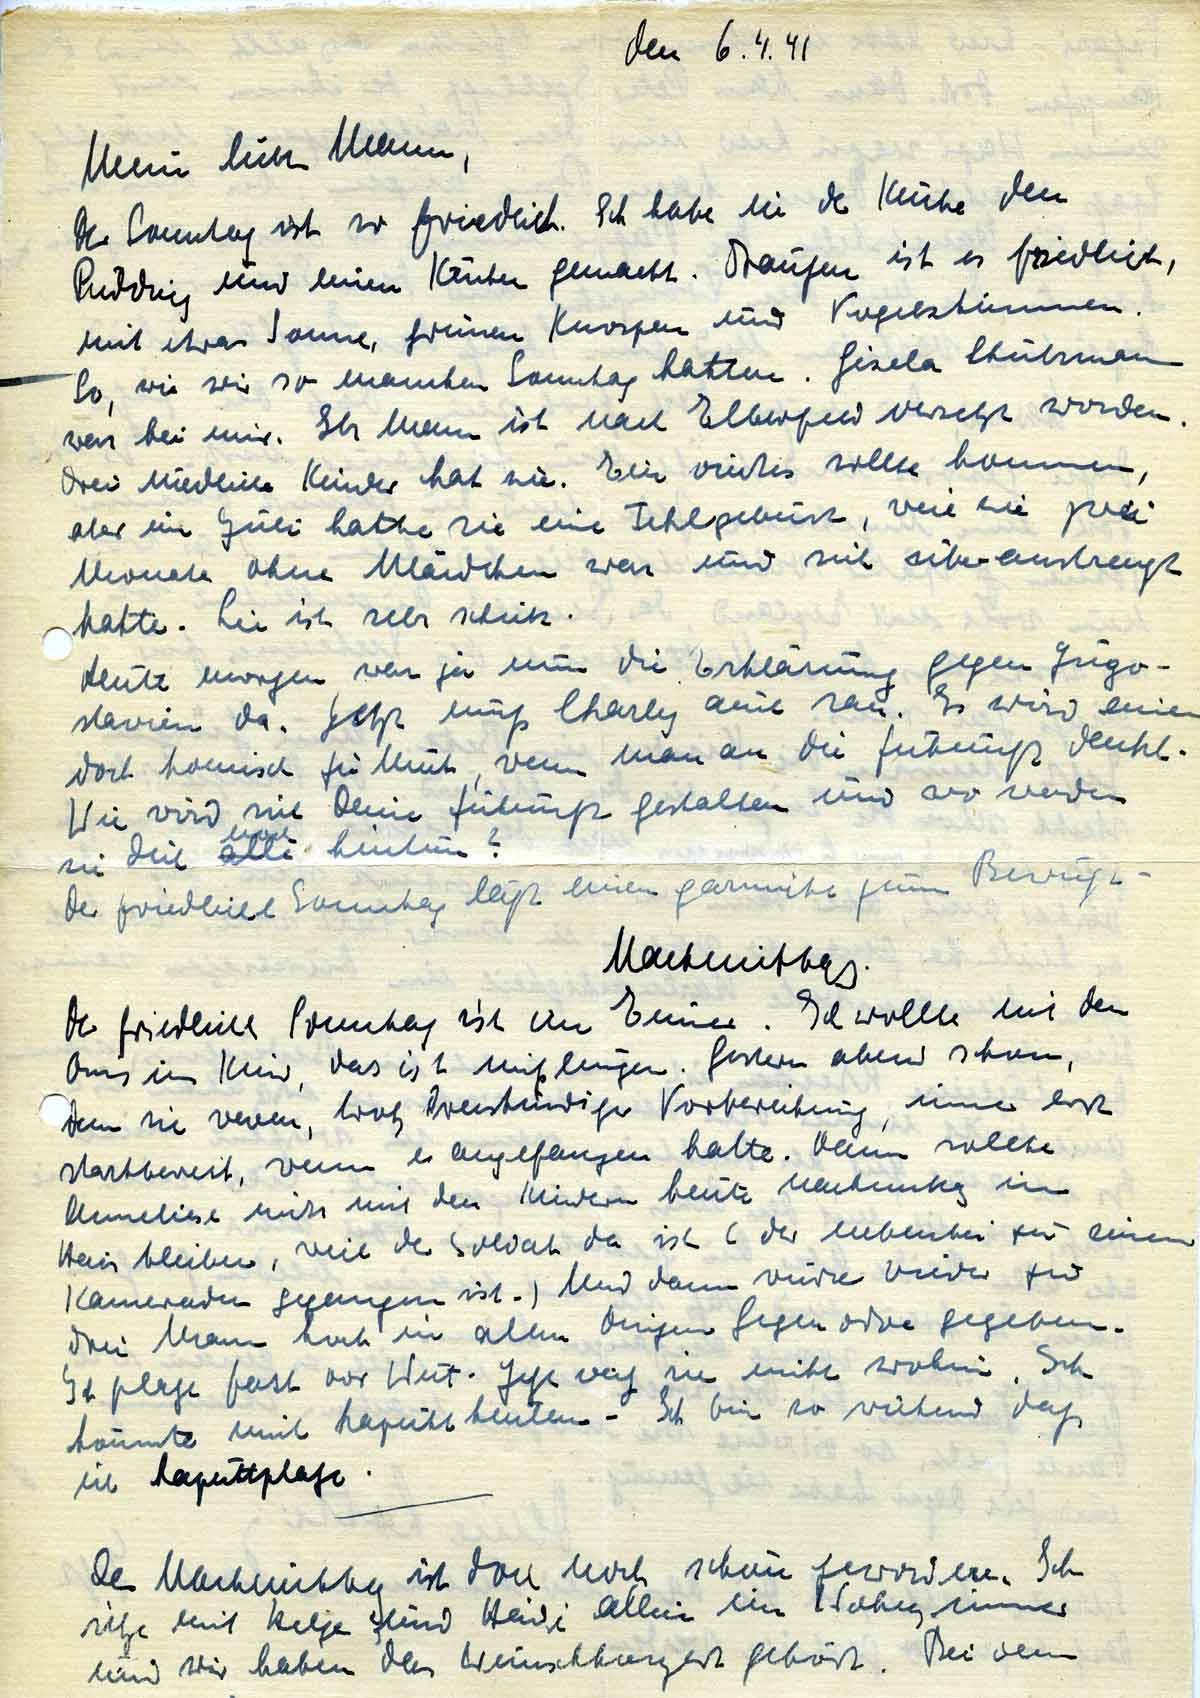 den 6.4.41
Mein lieber Mann,
Der Sonntag ist so friedlich. Ich habe in der Küche den
Pudding und einen Kuchen gemacht. Draußen ist es friedlich,
mit etwas Sonne, grünen Knospen und Vogelstimmen.
So, wie wir so manchen Sonntag hatten. Gisela
war bei mir. Ihr Mann ist nach Elberfeld versetzt worden.
Drei niedliche Kinder hat sie. Ein viertes sollte kommen,
aber im Juli hatte sie eine Fehlgeburt, weil sie zwei
Monate ohne Mädchen war und sich überanstrengt
hatte. Sie ist sehr schick.
Heute morgen war ja nun die Erklärung gegen Jugo-
slavien da. Jetzt muß Charly auch ran. Es wird einem
doch komisch zu Mute, wenn man an die Zukunft denkt.
Wie wird sich Deine Zukunft gestalten und wo werden
sie Dich noch hintun?
Der friedliche Sonntag läßt einen garnicht zum Bewußt-
Nachmittag.
Der friedliche Sonntag ist im Eimer. Ich wollte mit den
Omas ins Kino, das ist mißlungen. Gestern abend schon,
denn sie waren, trotz dreistündiger Vorbereitung, immer erst
startbereit, wenn es angefangen hatte. Dann sollte
Anneliese mir mit den Kindern heute Nachmittag im
Haus bleiben, weil der Soldat da ist (der nebenbei zu seinem
Kameraden gegangen ist.) Und dann wurde wieder zu
drei Mann hoch in allen Dingen Gegenorder gegeben.
Ich platze fast vor Wut. Jetzt weiß sie nicht wohin. Ich
könnte mich kaputt heulen. Ich bin so wütend daß
ich kaputtplatze.
Der Nachmittag ist doch noch schön geworden. Ich
sitze mit Helge und Heidi allein im Wohnzimmer
und wir haben das Wunschkonzert gehört. Bei dem